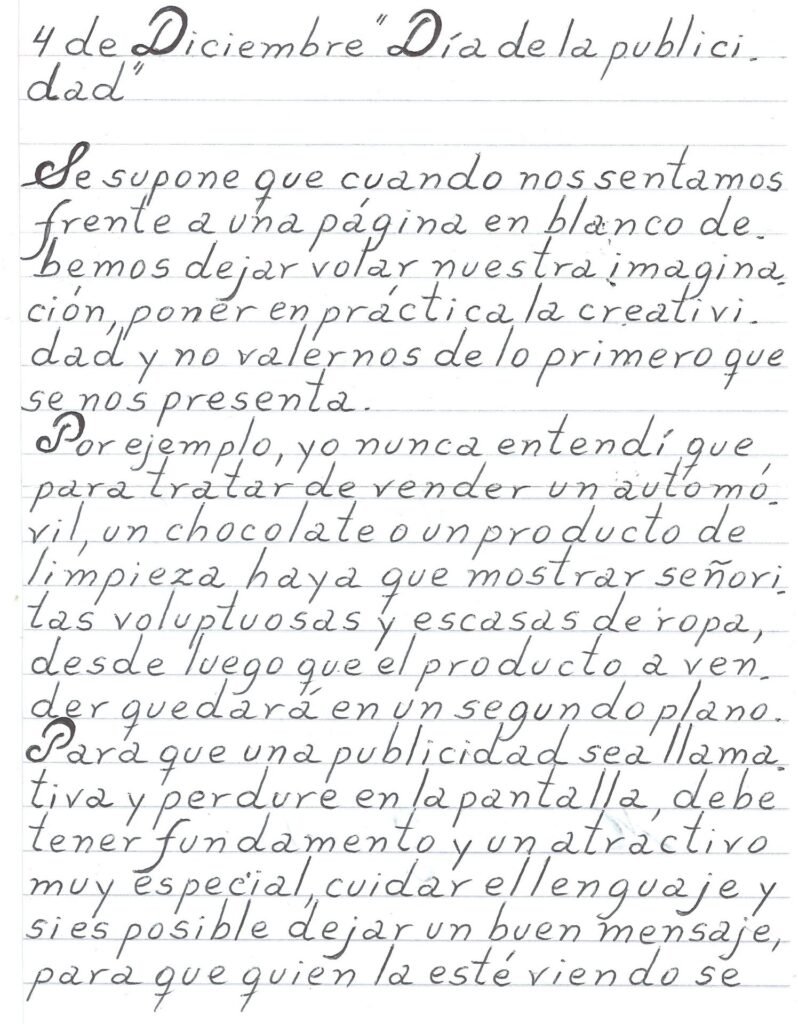 4 de Diciembre "Día de la publici-
dad"
Se supone que cuando nos sentamos
frente a una página en blanco de-
bemos dejar volar nuestra imagina-
ción, poner en práctica la creativi-
dad y no valernos de lo primero que
se nos presenta.
Por ejemplo, yo nunca entendí que
para tratar de vender un automó-
vil, un chocolate o un producto de
limpieza haya que mostrar señori-
tas voluptuosas y escasas de ropa,
desde luego que el producto a ven-
der quedará en un segundo plano.
Para que una publicidad sea llama-
tiva y perdure en la pantalla, debe
tener fundamento y un atractivo
muy especial, cuidar el lenguaje y
si es posible dejar un buen mensaje,
para que quien la esté viendo se